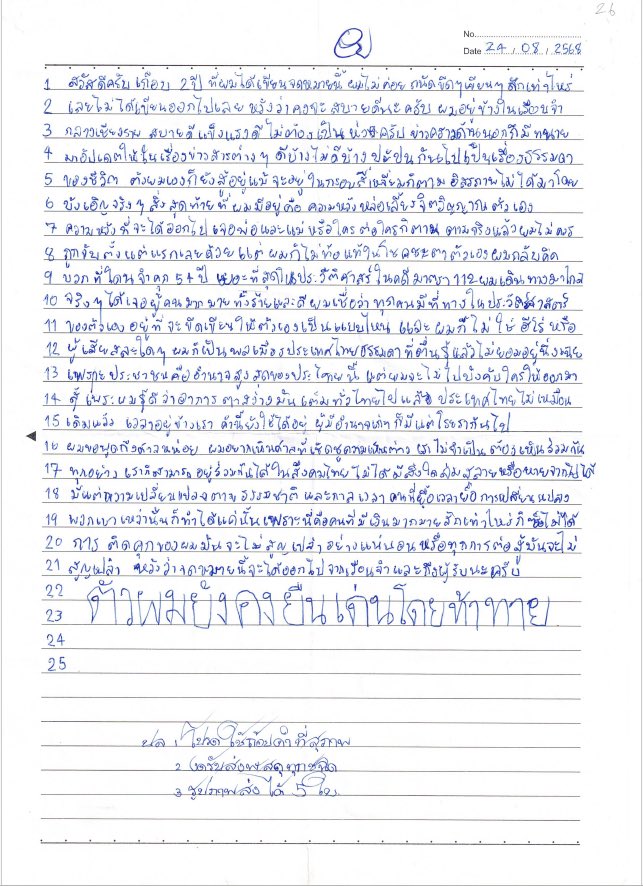 26
No.
Date 24 / 08 / 2568
1 สวัสดีครับ เกือบ 2 ปี ที่ผมได้เขียนจดหมายนี้ ผมไม่ค่อย ถนัดขีดๆเขียนๆสักเท่าไหร่
2 เลยไม่ได้เขียนออกไปเลย หวังว่าคงจะสบายดีนะครับ ผมอยู่ข้างในเรือนจำ
3 กลางเชียงราย สบายดี แข็งแรงดี ไม่ต้องเป็นห่วงครับ ข่าวคราวด้านนอกก็มีทนาย
4 มาอัปเดตให้ในเรื่องข่าวสารต่างๆ ดีบ้างไม่ดีบ้าง ปะปนกันไปเป็นเรื่องธรรมดา
5 ของชีวิต ตัวผมเองก็ยังสู้อยู่แม้จะอยู่ในกรอบสี่เหลี่ยมก็ตาม อิสรภาพไม่ได้มาโดย
6 บังเอิญจริงๆ สิ่งสุดท้ายที่ผมมีอยู่คือ ความหวังหล่อเลี้ยงจิตวิญญาณตัวเอง
7 ความหวังที่จะได้ออกไปเจอพ่อและแม่หรือใครต่อใครก็ตาม ตามจริงแล้วผมไม่ควร
8 ถูกจับตั้งแต่แรกเลยด้วย แต่ ผมก็ไม่ท้อแท้ในโชคชะตาตัวเองผมกลับคิด
9 บวก ที่โดนจำคุก 54 ปี เยอะที่สุดในประวัติศาสตร์ในคดีมาตรา 112 ผมเดินทางมาไกล
10 จริงๆได้เจอผู้คนมากมายทั้งร้ายและดี ผมเชื่อว่าทุกคนมีที่ทางในประวัติศาสตร์
11 ของตัวเองอยู่ที่จะขีดเขียนให้ตัวเองเป็นแบบไหน และผมก็ไม่ใช่ฮีโร่ หรือ
12 ผู้เสียสละใดๆ ผมก็เป็นพลเมืองประเทศไทยธรรมดาที่ตื่นรู้แล้วไม่ยอมอยู่นิ่งเฉย
13 เพราะประชาชนคืออำนาจสูงสุดของประเทศนี้ แต่ผมจะไม่ไปบังคับใครให้ออกมา
14 สู้ เพราะผมรู้ดีว่าอาการตาสว่างมันเต็มทั่วไทยไปแล้ว ประเทศไทยไม่เหมือน
15 เดิมแล้ว เวลาอยู่ข้างเรา คำนี้ยังใช้ได้อยู่ ผู้มีอำนาจเก่าๆก็มีแต่โรยรากันไป
16 ผมขอพูดถึงศาลหน่อย ผมอยากเห็นศาลที่เชิดชูความเห็นต่าง เราไม่จำเป็นต้องเห็นร่วมกัน
17 ทุกอย่าง เราก็สามารถอยู่ร่วมกันได้ในสังคมไทย ไม่ได้มีสิ่งใดล่มสลายหรือหายจากไปได้
18 มีแต่ความเปลี่ยนแปลงตามธรรมชาติ และกาลเวลา คนที่ยื้อเวลายื้อการเปลี่ยนแปลง
19 พวกเขาเหล่านั้นก็ทำได้แค่นั้นเพราะนี่คือคนที่มีเงินมากมายสักเท่าไหร่ก็ซื้อไม่ได้
20 การ ติดคุกของผมมันจะไม่สูญเปล่าอย่างแน่นอน หรือทุกการต่อสู้มันจะไม่
21 สูญเปล่า หวังว่าจดหมายนี้จะได้ออกไปจากเรือนจำและถึงผู้รับนะครับ
22
23 ตัวผมยังคงยืนเด่นโดยท้าทาย
24
25
ปล 1 โปรดใช้ถ้อยคำที่สุภาพ
2 งดรับส่งพัสดุทุกชนิด
3 รูปภาพส่งได้ 5 ใบ